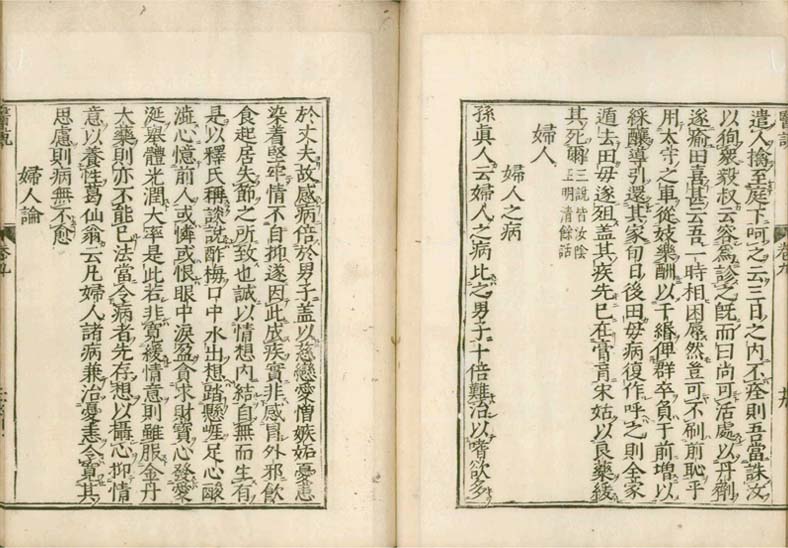 醫說
卷九
遣人擒至庭下呵之云三日之內不痊則吾當誅汝
以狥衆毅叔云容爲診之旣而曰尚可活處以丹劑
遂瘉田喜甚云吾一時相困辱然豈可不刷前恥乎
用太守之車從妓樂酬以千緡俾群卒負于前増以
綵釀導引還其家旬日後田毋病復作呼之則全家
遁去田毋遂殂盖其疾先已在膏肓宋姑以良藥緩
其死爾三說皆汝陰
王明清餘話
婦人
婦人之病
孫眞人云婦人之病比之男子十倍難治以嗜欲多
於丈夫故感病倍於男子盖以慈戀愛憎嫉妬憂恚
染着堅牢情不自抑遂因此成疾實非感冒外邪飲
食起居失節之所致也誠以情想內結自無而生有
是以釋氏稱談說酢梅口中水出想踏懸崖足心酸
澁心憶前人或憐或恨眼中淚盈貪求財寶心發愛
涎舉體光潤大率是此若非寬緩情意則雖服金丹
大藥則亦不能已法當令病者先存想以攝心抑情
意以養性葛仙翁云凡婦人諸病兼治憂恚令寛其
思慮則病無不愈
婦人論
卷九